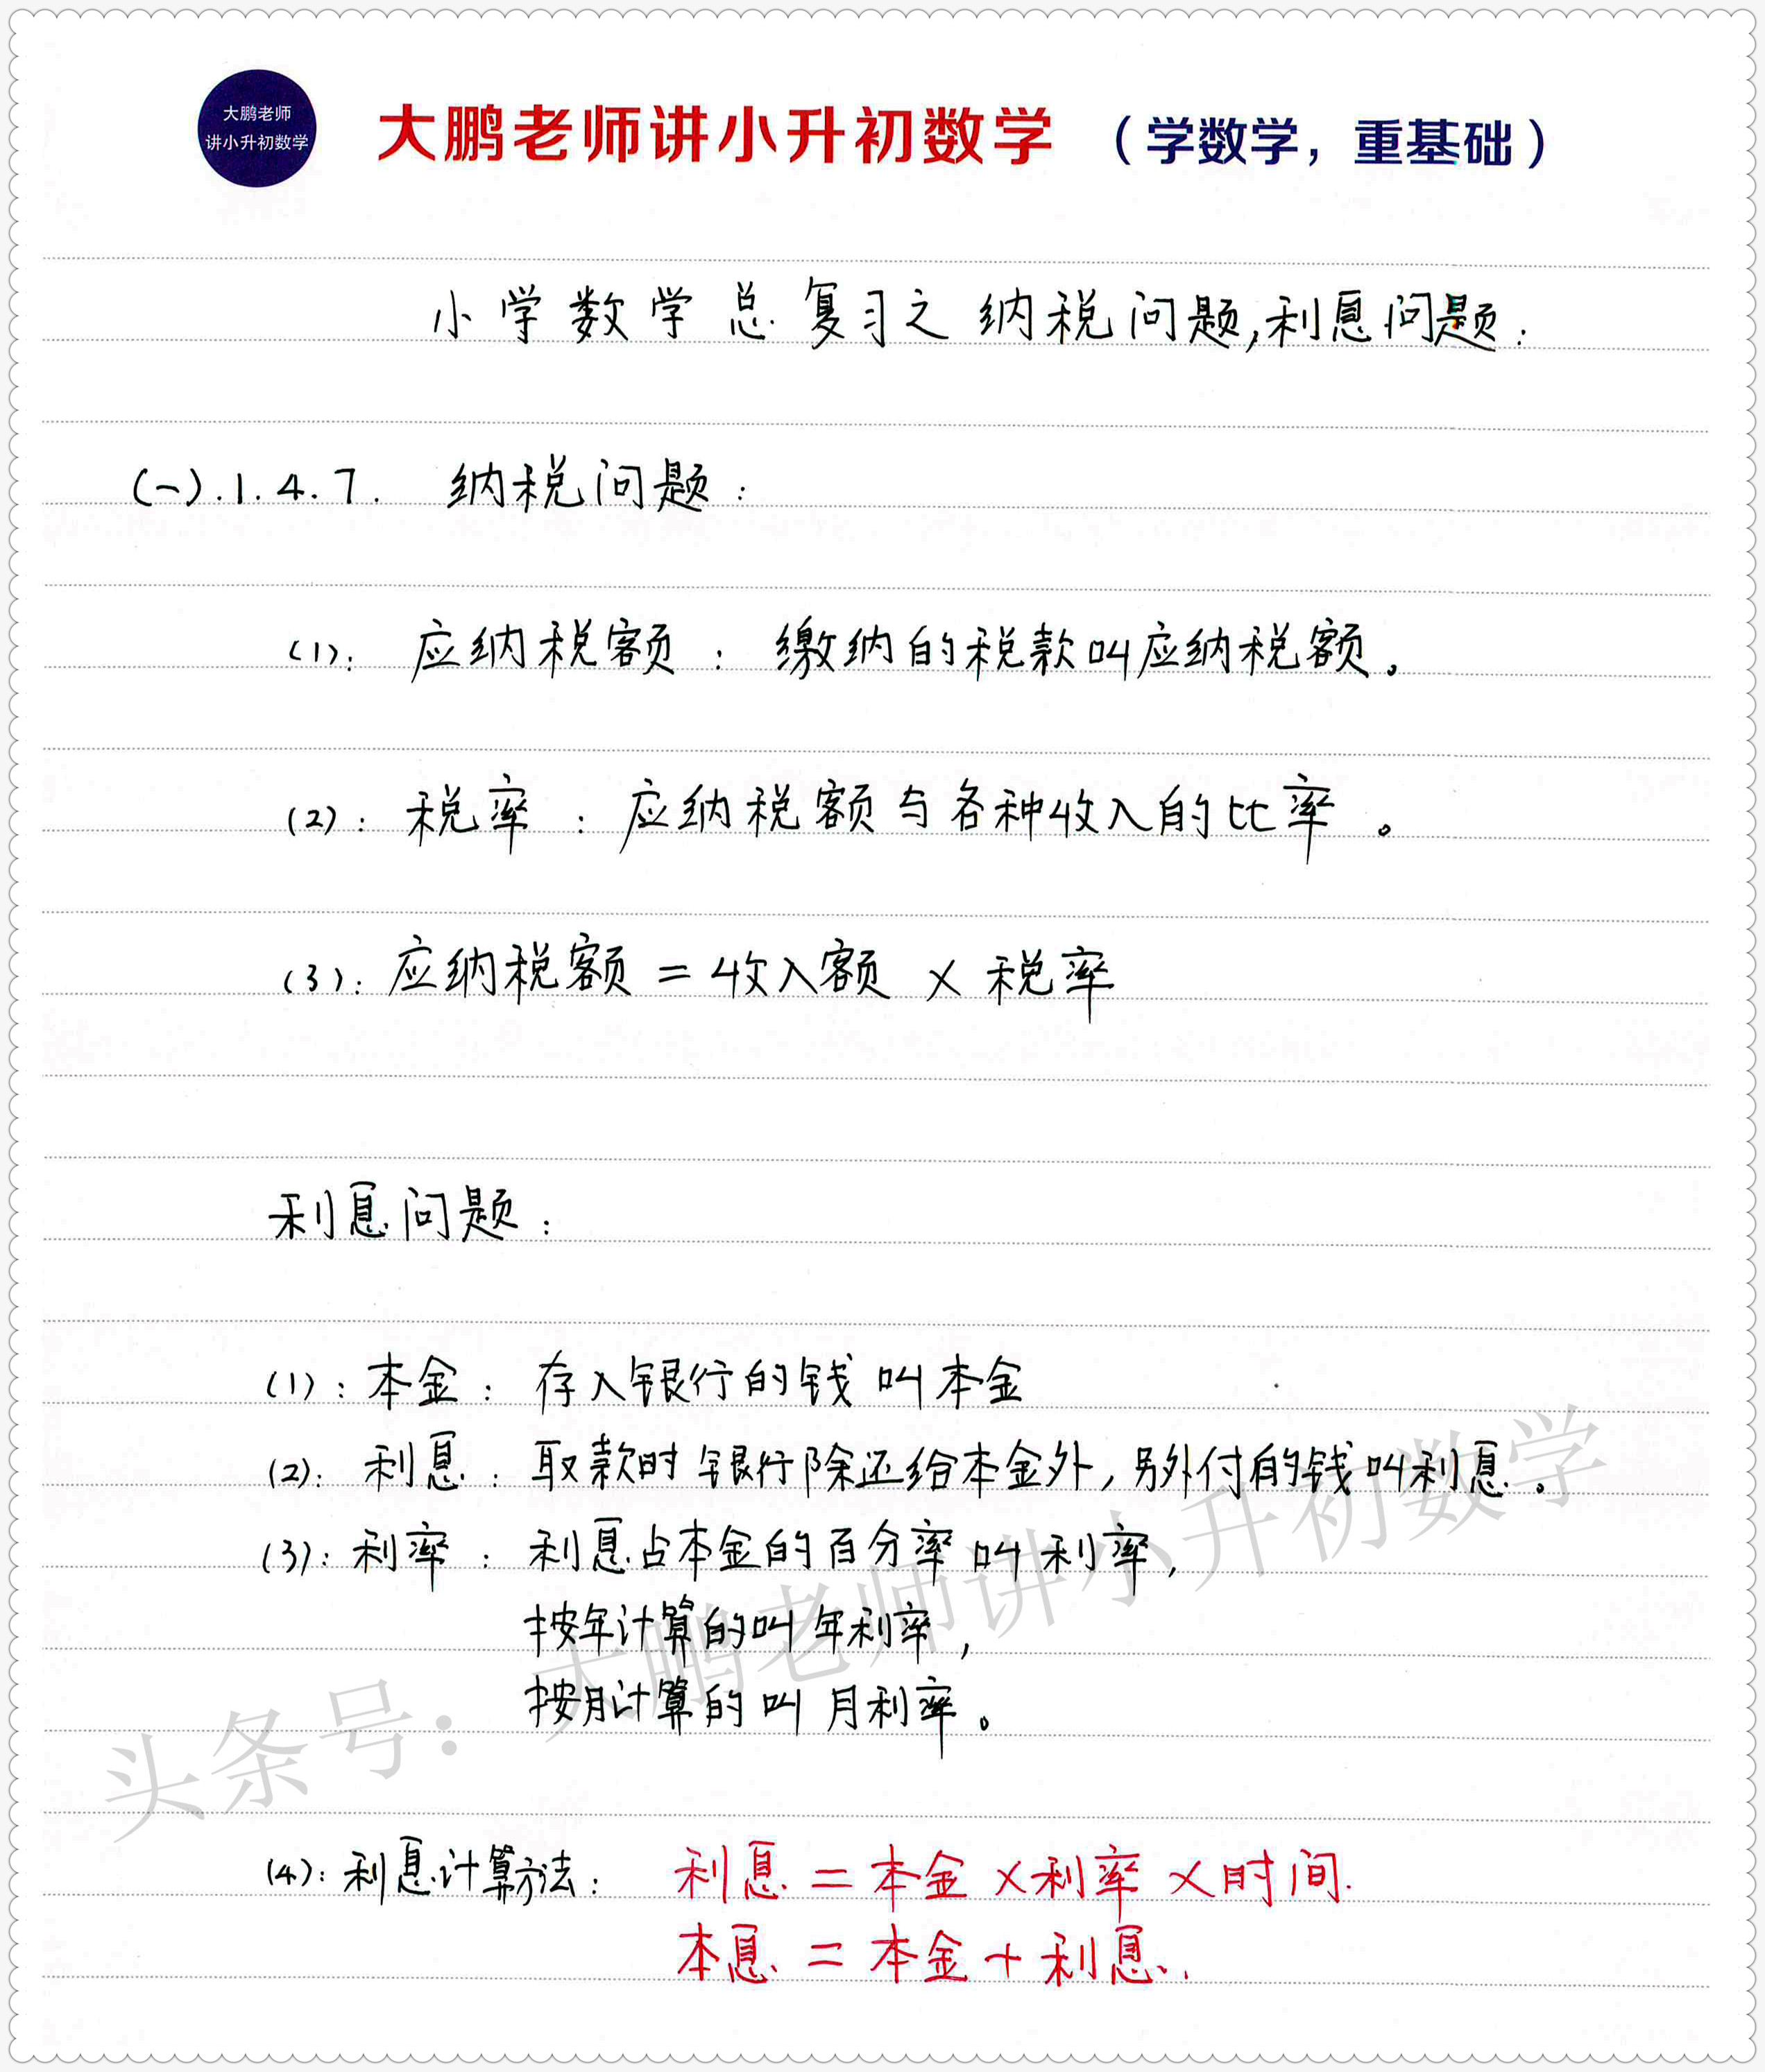 大鹏老师
讲小升初数学
大鹏老师讲小升初数学 （学数学，重基础）
小学数学总复习之纳税问题,利息问题：
(一).1.4.7. 纳税问题：
(1)：应纳税额：缴纳的税款叫应纳税额。
(2)：税率：应纳税额与各种收入的比率。
(3)：应纳税额＝收入额×税率
利息问题：
(1)：本金：存入银行的钱叫本金
(2)：利息：取款时银行除还给本金外，另外付的钱叫利息。
(3)：利率：利息占本金的百分率叫利率，
按年计算的叫年利率，
按月计算的叫月利率。
(4)：利息计算方法：利息＝本金×利率×时间.
本息＝本金＋利息.
头条号：大鹏老师讲小升初数学